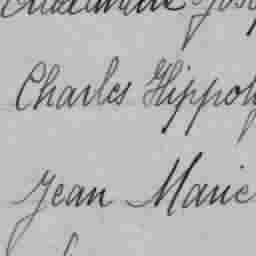 Charles Hippoly
Jean Marie